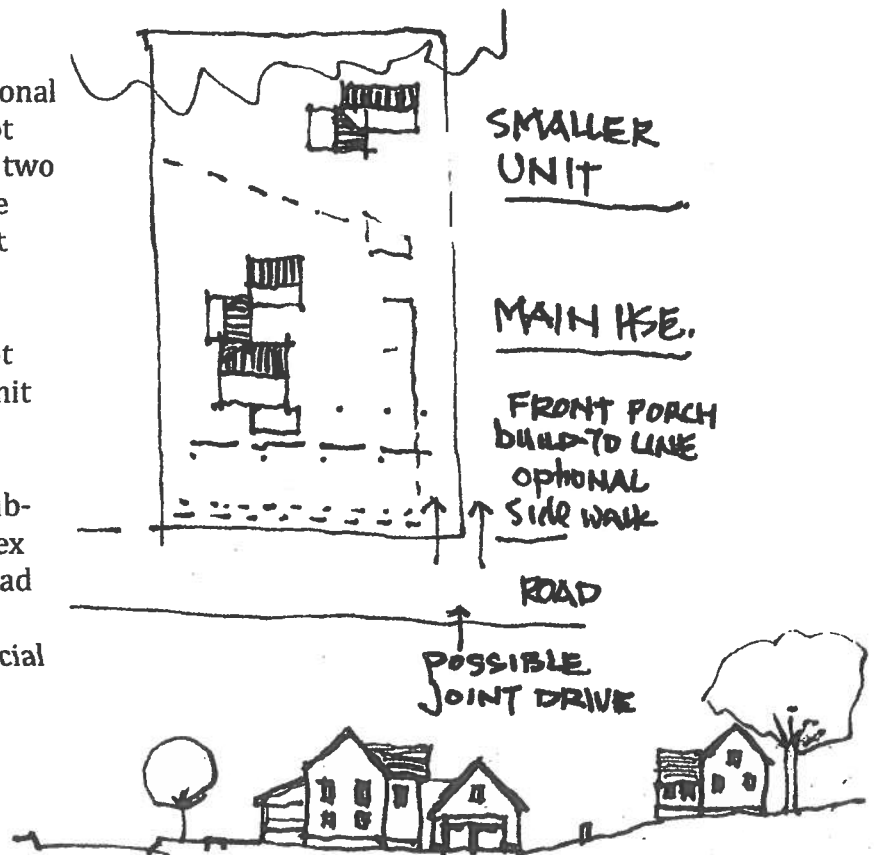 onal
ot
two
e
t
ot
nit
ub-
ex
ad
cial
SMALLER
UNIT
MAIN HSE.
FRONT PORCH
BUILD-TO LINE
OPTIONAL
SIDE WALK
ROAD
POSSIBLE
JOINT DRIVE